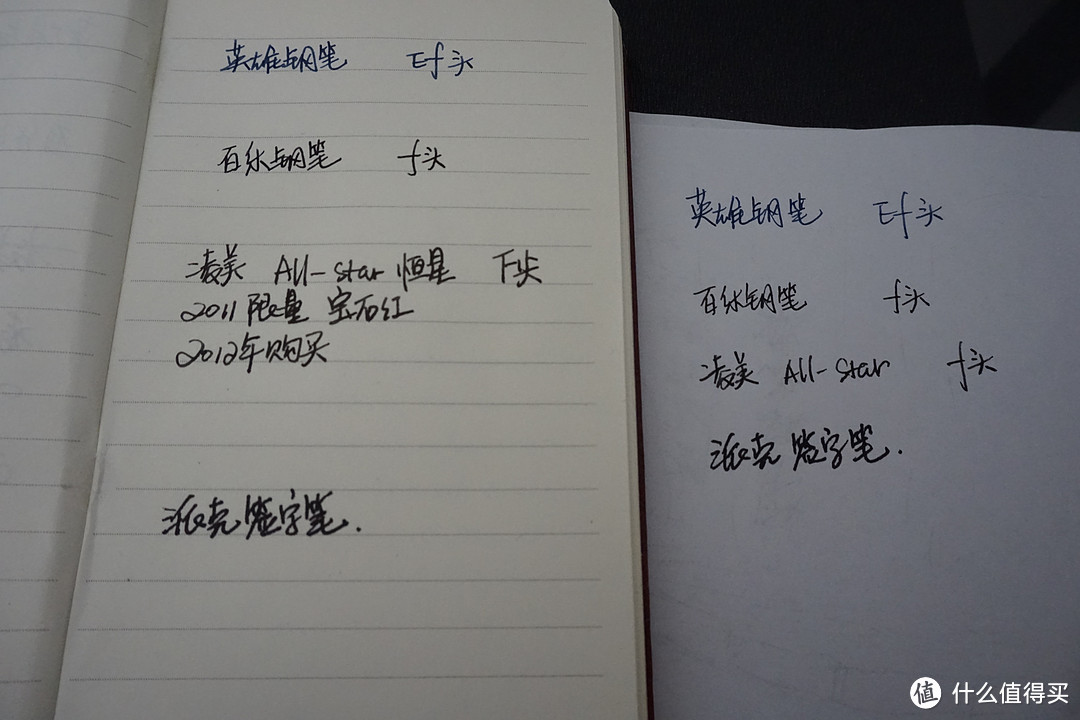 英雄钢笔 Ef头
百乐钢笔 f头
凌美 All-star 恒星 F头
2011限量 宝石红
2012年购买
派克签字笔.
英雄钢笔 Ef头
百乐钢笔 f头
凌美 All-star f头
派克签字笔.
值 什么值得买